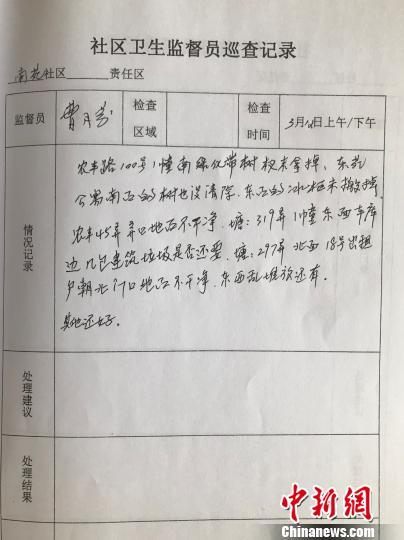 社区卫生监督员巡查记录
南苑社区 责任区
监督员 曹月芬 检查区域 检查时间 3月 日上午/下午
情况记录
农丰路100号1幢南绿化带树权未拿掉、东苑
公寓南面的树也没清除、东面的冰柜未搬掉
农丰45弄弄口地面不干净、塘:319弄11幢东面车库
边几包建筑垃圾是否还要、塘:297弄北面18号出租
户朝北门口地面不干净、东西乱堆放还有。
其他还好。
处理建议
处理结果
中新网
Chinanews.com